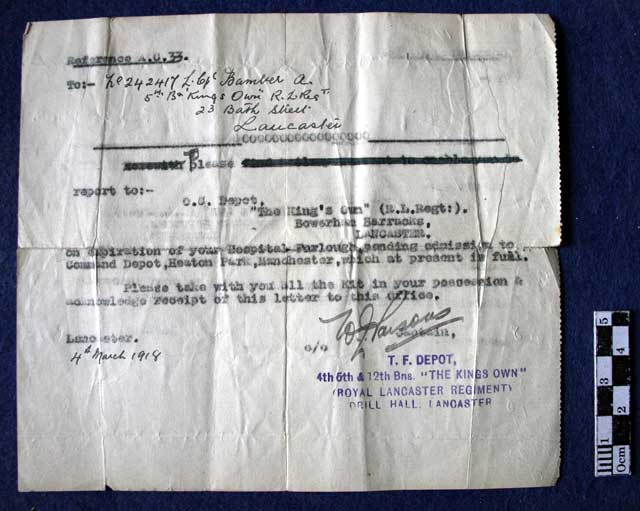 Reference A.O.33.
To:- No 242417 L. Cpl Bamber A.
5th Bn Kings Own R. L Regt
23 Bath Street
Lancaster
OOOOOOOOOOOOOOOOOO
Herewith Please
report to:-
O.C. Depot,
"The King's Own" (R.L.Regt:).
Bowerham Barracks,
LANCASTER.
on expiration of your Hospital Furlough, pending admission to
Command Depot, Heaton Park, Manchester, which at present is full.
Please take with you all the Kit in your possession &
acknowledge receipt of this letter to this office.
Lancaster.
4th March 1918
Parsons
Captain,
o/c
T. F. DEPOT,
4th 5th & 12th Bns. "THE KINGS OWN"
(ROYAL LANCASTER REGIMENT)
DRILL HALL, LANCASTER
0cm 1 2 3 4 5